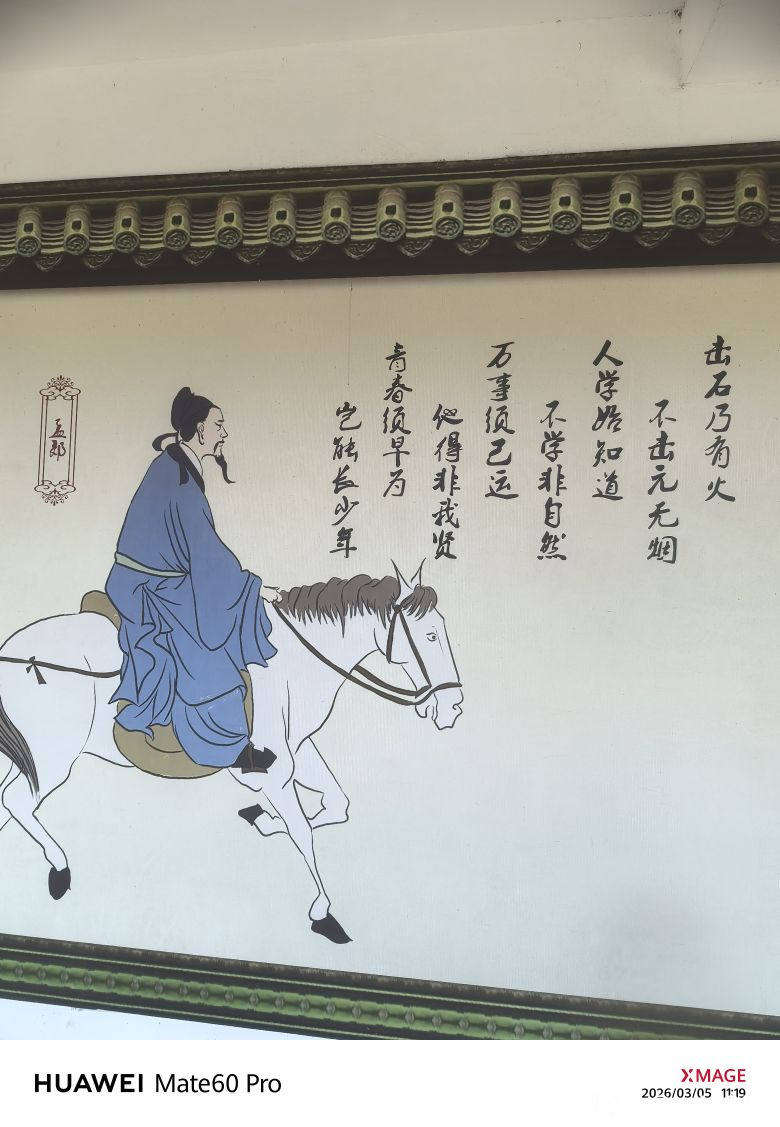 击石乃有火
不击元无烟
人学始知道
不学非自然
万事须己运
他得非我贤
青春须早为
岂能长少年
孟郊
HUAWEI Mate60 Pro
XMAGE
2026/03/05 11:19